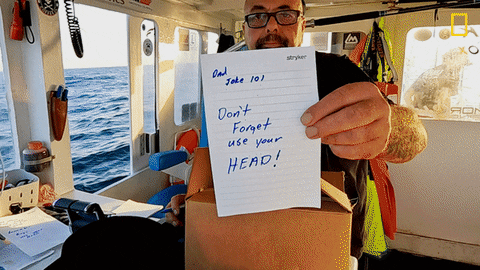 stryker
Dad
Joke 101
Don't
Forget
use your
HEAD!